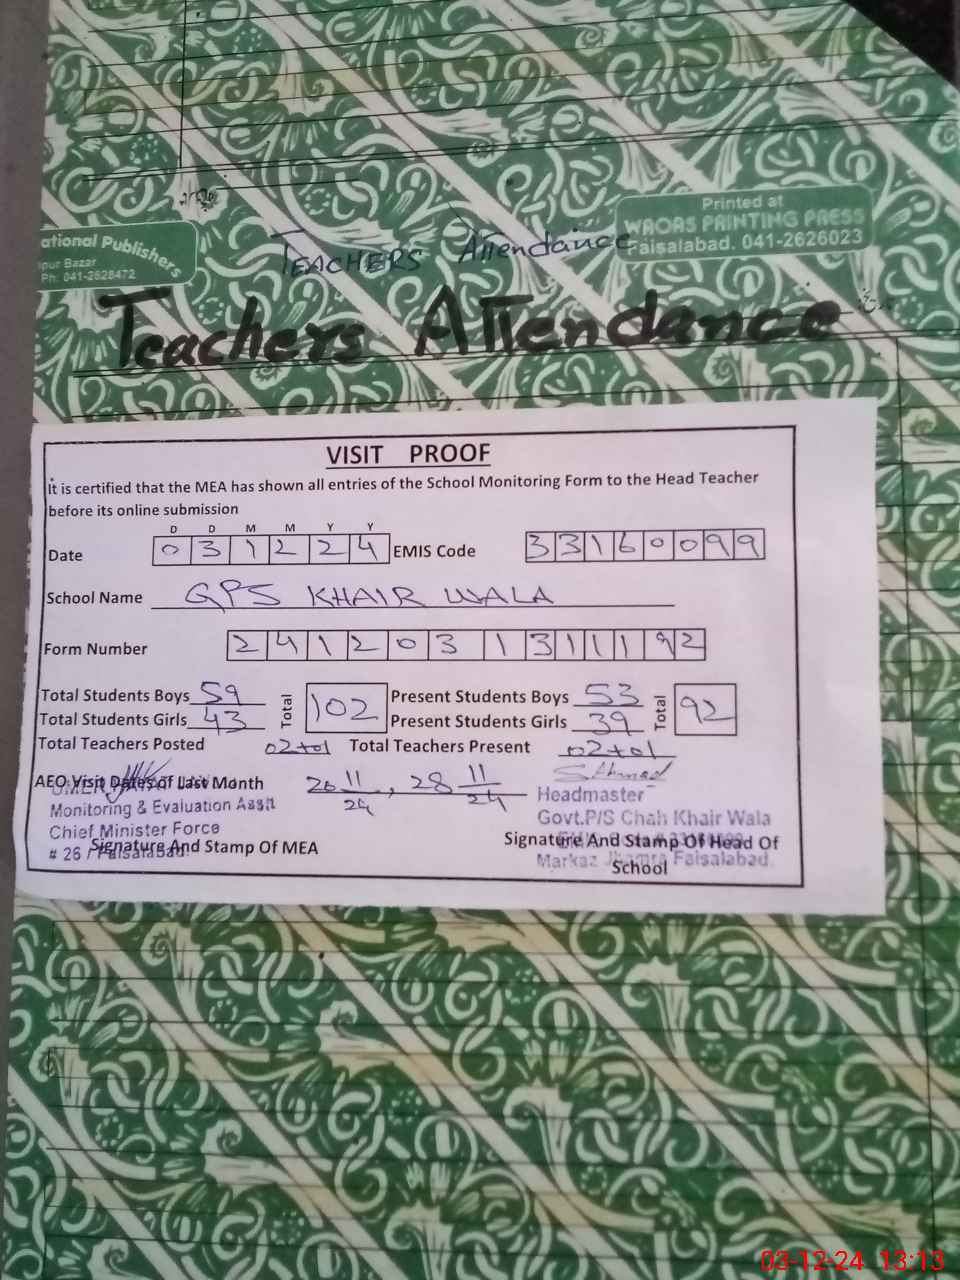 Printed at
WAQAS PRINTING PRESS
Faisalabad. 041-2626023
ational Publishers
pur Bazar
Ph: 041-2628472
TEACHERS Attendance
Teachers Attendance
VISIT PROOF
It is certified that the MEA has shown all entries of the School Monitoring Form to the Head Teacher
before its online submission
D D M M Y Y
Date 0 3 1 2 2 4 EMIS Code 3 3 1 6 0 0 9 9
School Name GPS KHAIR WALA
Form Number 2 4 1 2 0 3 1 3 1 1 1 9 2
Total Students Boys 59 Total 102 Present Students Boys 53 Total 92
Total Students Girls 43 Present Students Girls 39
Total Teachers Posted 02+01 Total Teachers Present 02+01
AEO Visit Dates of Last Month 26 11/24, 28 11/24 S Ahmad
Monitoring & Evaluation Asstt
Chief Minister Force
# 26 / Faisalabad.
Signature And Stamp Of MEA
Headmaster
Govt.P/S Chah Khair Wala
Signature And Stamp Of Head Of
Markaz Jhamra Faisalabad.
School
03-12-24 13:13